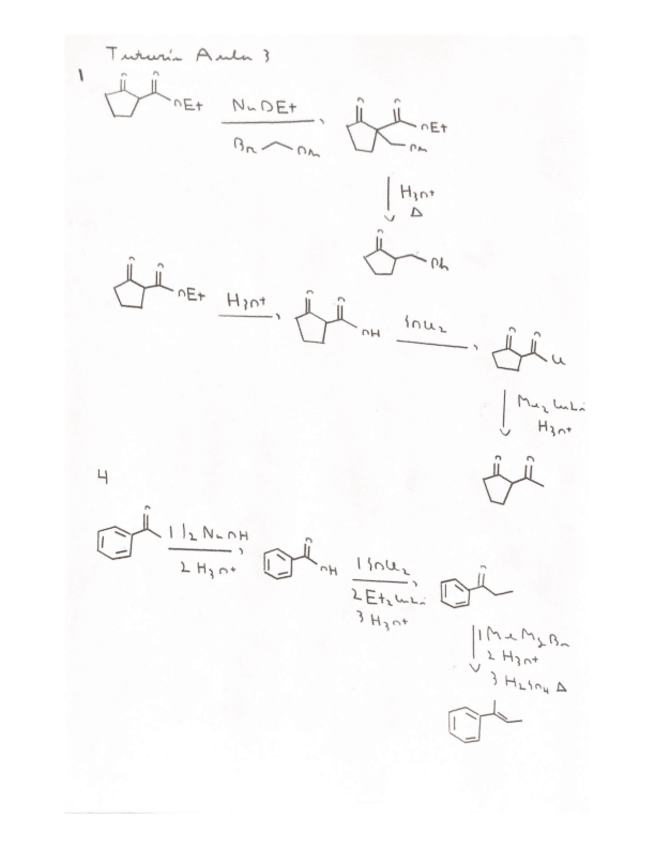 Tutoria Aula 3
1
O O OEt
NaOEt
Br Ph
O O OEt
Ph
H3O+
Δ
O Ph
O O OEt
H3O+
O O OH
SOCl2
O O Cl
Me2CuLi
H3O+
O O
4
O
1 I2 NaOH
2 H3O+
O OH
1 SOCl2
2 Et2CuLi
3 H3O+
O
1 MeMgBr
2 H3O+
3 H2SO4 Δ